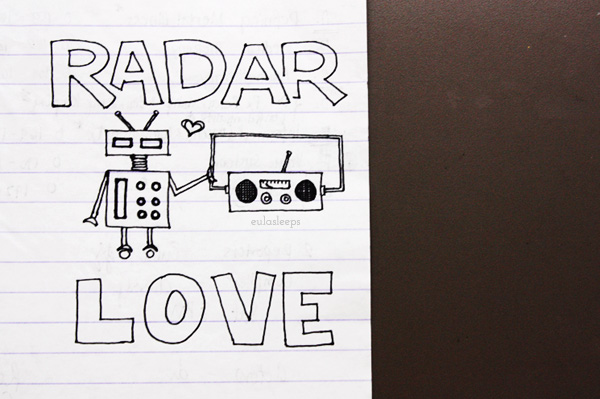 RADAR
eulasleeps
LOVE